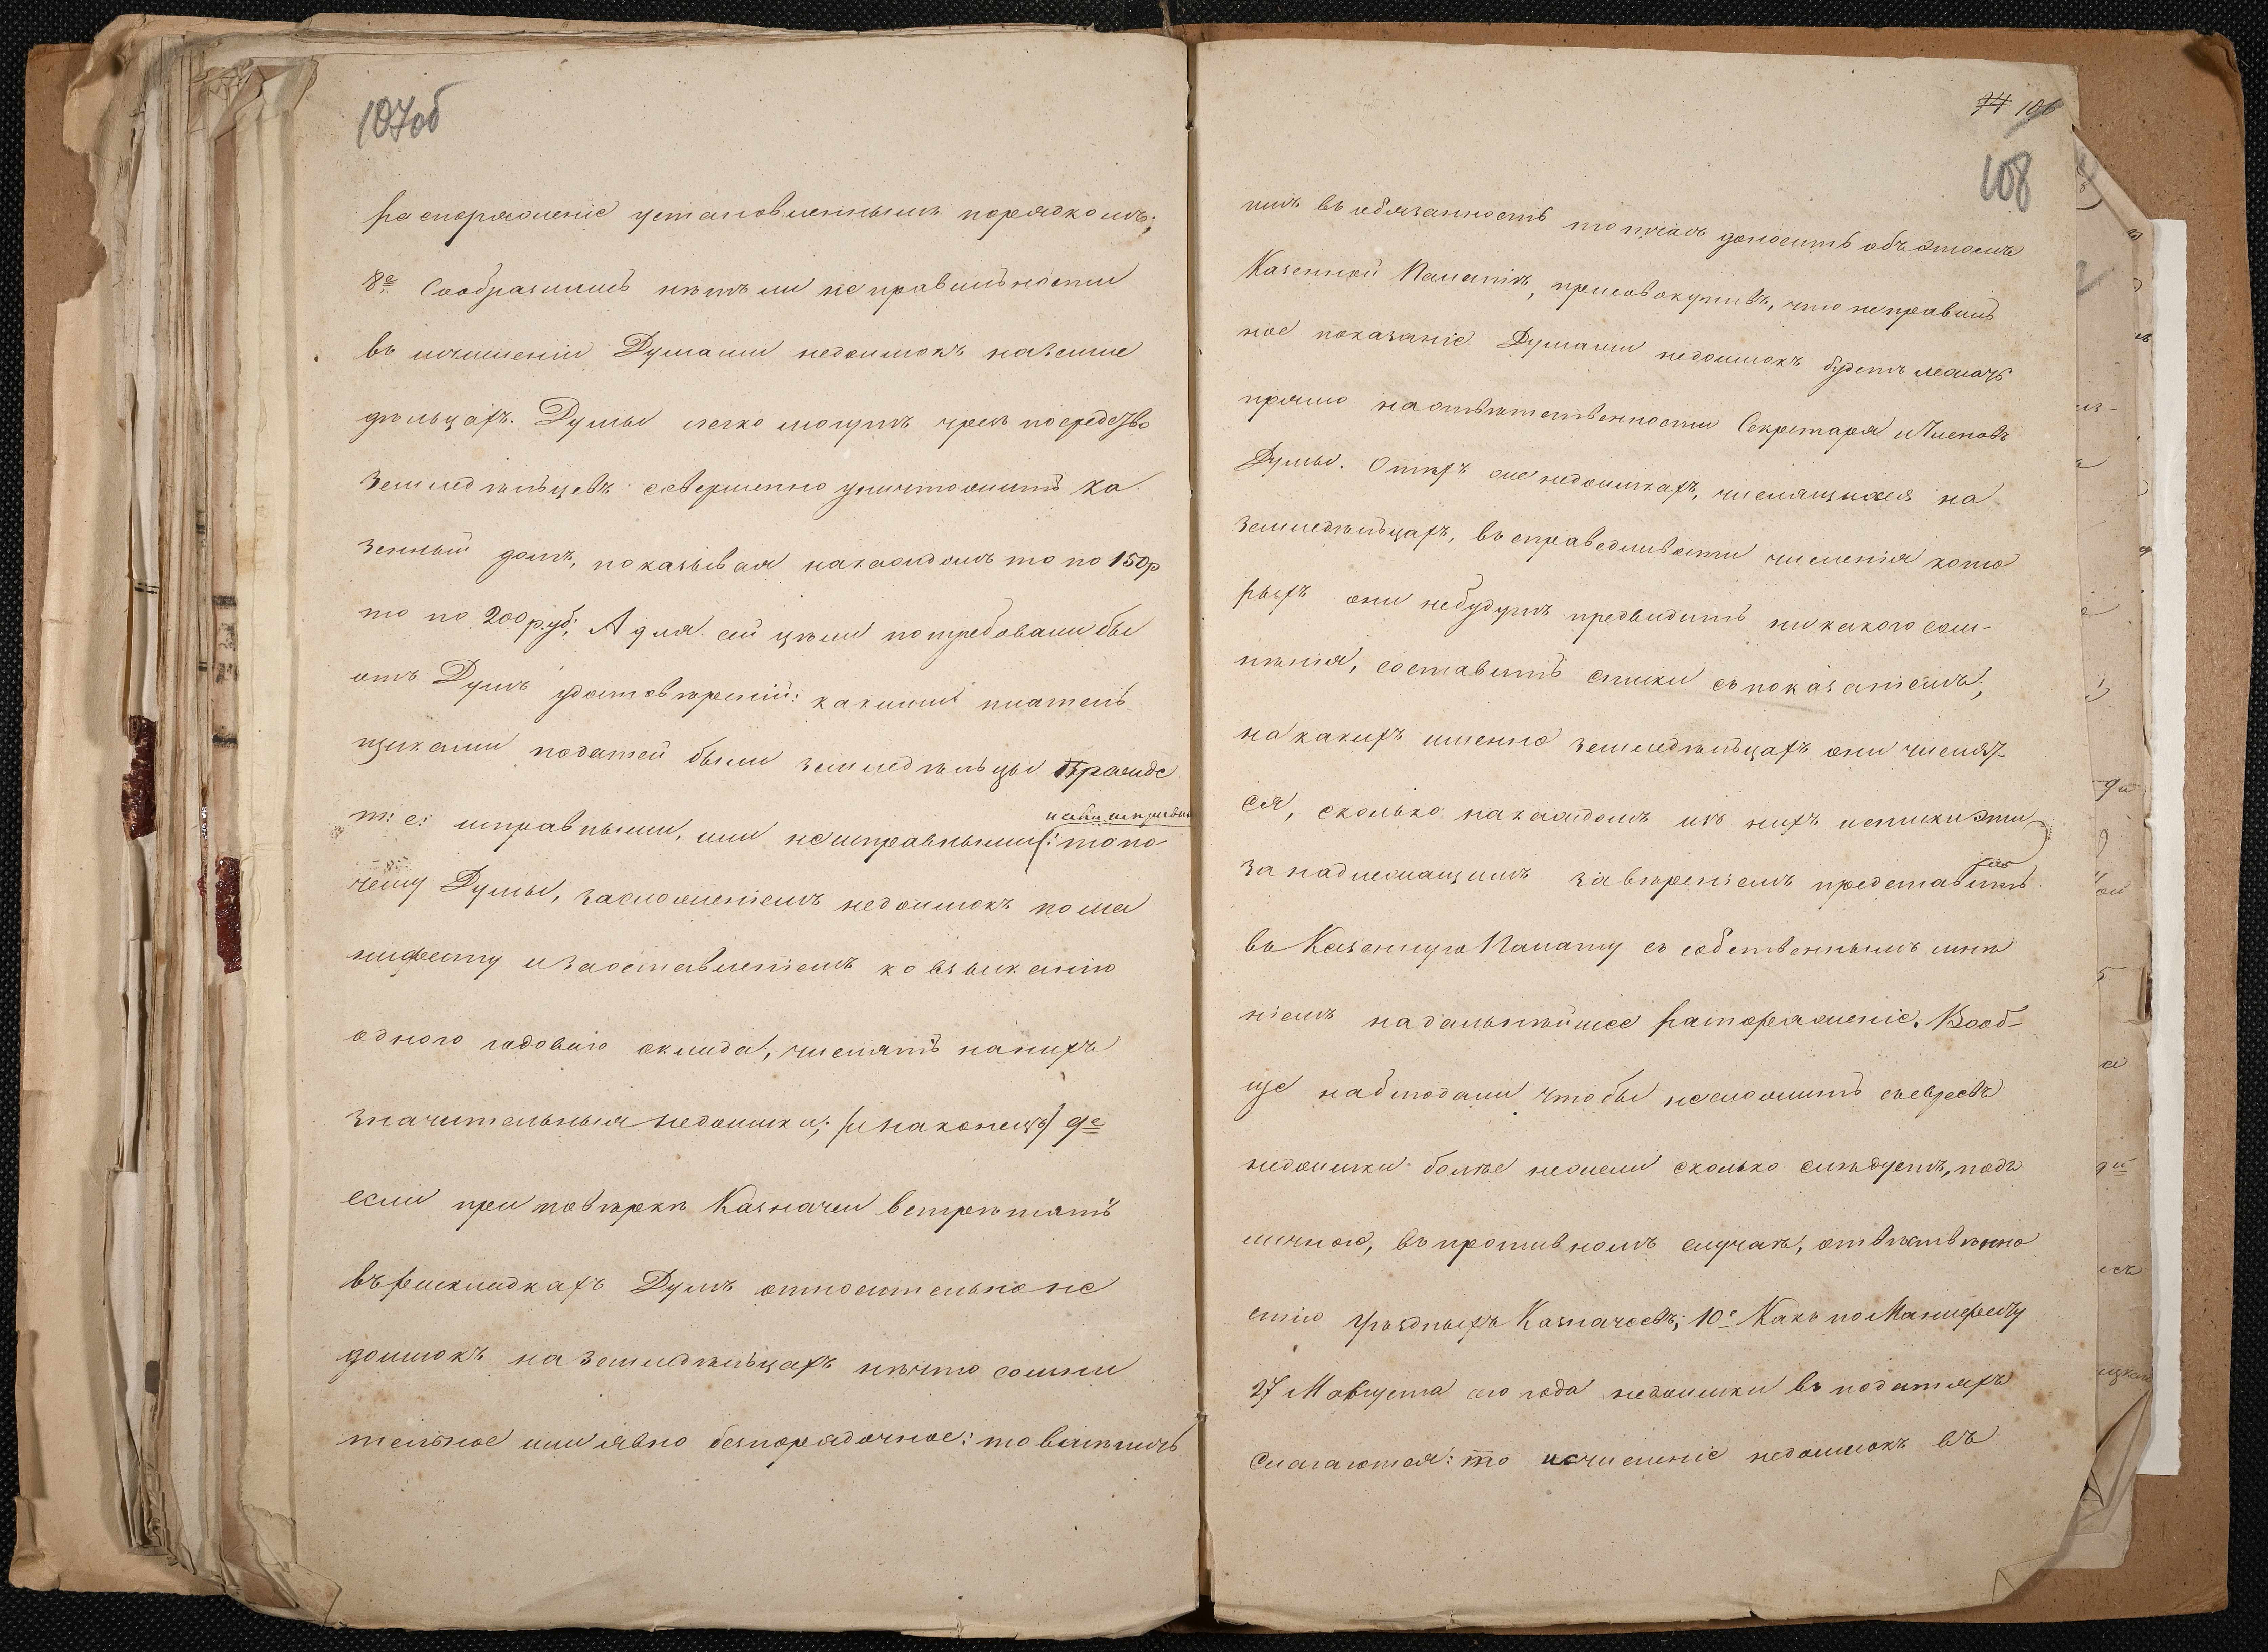 107об
распоряженіе установленнымъ порядкомъ;
8е Сообразишь нѣтъ ли неправильности
въ исчисленіи Думами недоимокъ на земле
дѣльцахъ. Думы легко могутъ чрезъ посредство
земледѣльцевъ совершенно уничтожить ка
зенный домъ, показывая на каждомъ то по 150р
то по 200 руб; А для сей цѣли потребовали бы
отъ Думъ удостовѣреній: какими плател
щиками податей были земледѣльцы прежде
т: е: исправными, или неисправными
то по
чему Думы, за сложеніемъ недоимокъ по ма
нифесту и за оставленіемъ ко взысканію
одного годоваго оклада, числятъ на нихъ
значительныя недоимки; /и наконецъ/ 9е
если при повѣркѣ Казначеи встрѣтятъ
въ раскладкахъ Думъ относительно не
доимокъ на земледѣльцахъ нѣчто сомни
тельное или явно безпорядочное: то вмѣнить
74 106
108
имъ въ обязанность тотчасъ доносить объ этомъ
Казенной Палатѣ, присовокупивъ, что неправиль
ное показаніе Думами недоимокъ будетъ лежать
прямо на отвѣтственности Секретаря и Членовъ
Думы. О тѣхъ же недоимкахъ, числящихся на
земледѣльцахъ, въ справедливости численія кото
рыхъ они не будутъ предвидить никакого сом-
нѣнія, составить списки съ показаніемъ,
на какихъ именно земледѣльцахъ они числят-
ся, сколько на каждомъ изъ нихъ и списки эти
за надлежащимъ завѣреніемъ представить
въ Казенную Палату съ собственнымъ мнѣ
ніемъ на дальнѣйшее распоряженіе. Вооб-
ще наблюдали чтобы не сложить съ евреевъ
недоимки болѣе нежели сколько слѣдуетъ, подъ
личною, въ противномъ случаѣ, отвѣтственно
стію Уѣздныхъ Казначеевъ; 10е Какъ по Манифесту
27 Марта сего года недоимки въ податяхъ
слагаются: то исчисленіе недоимокъ въ